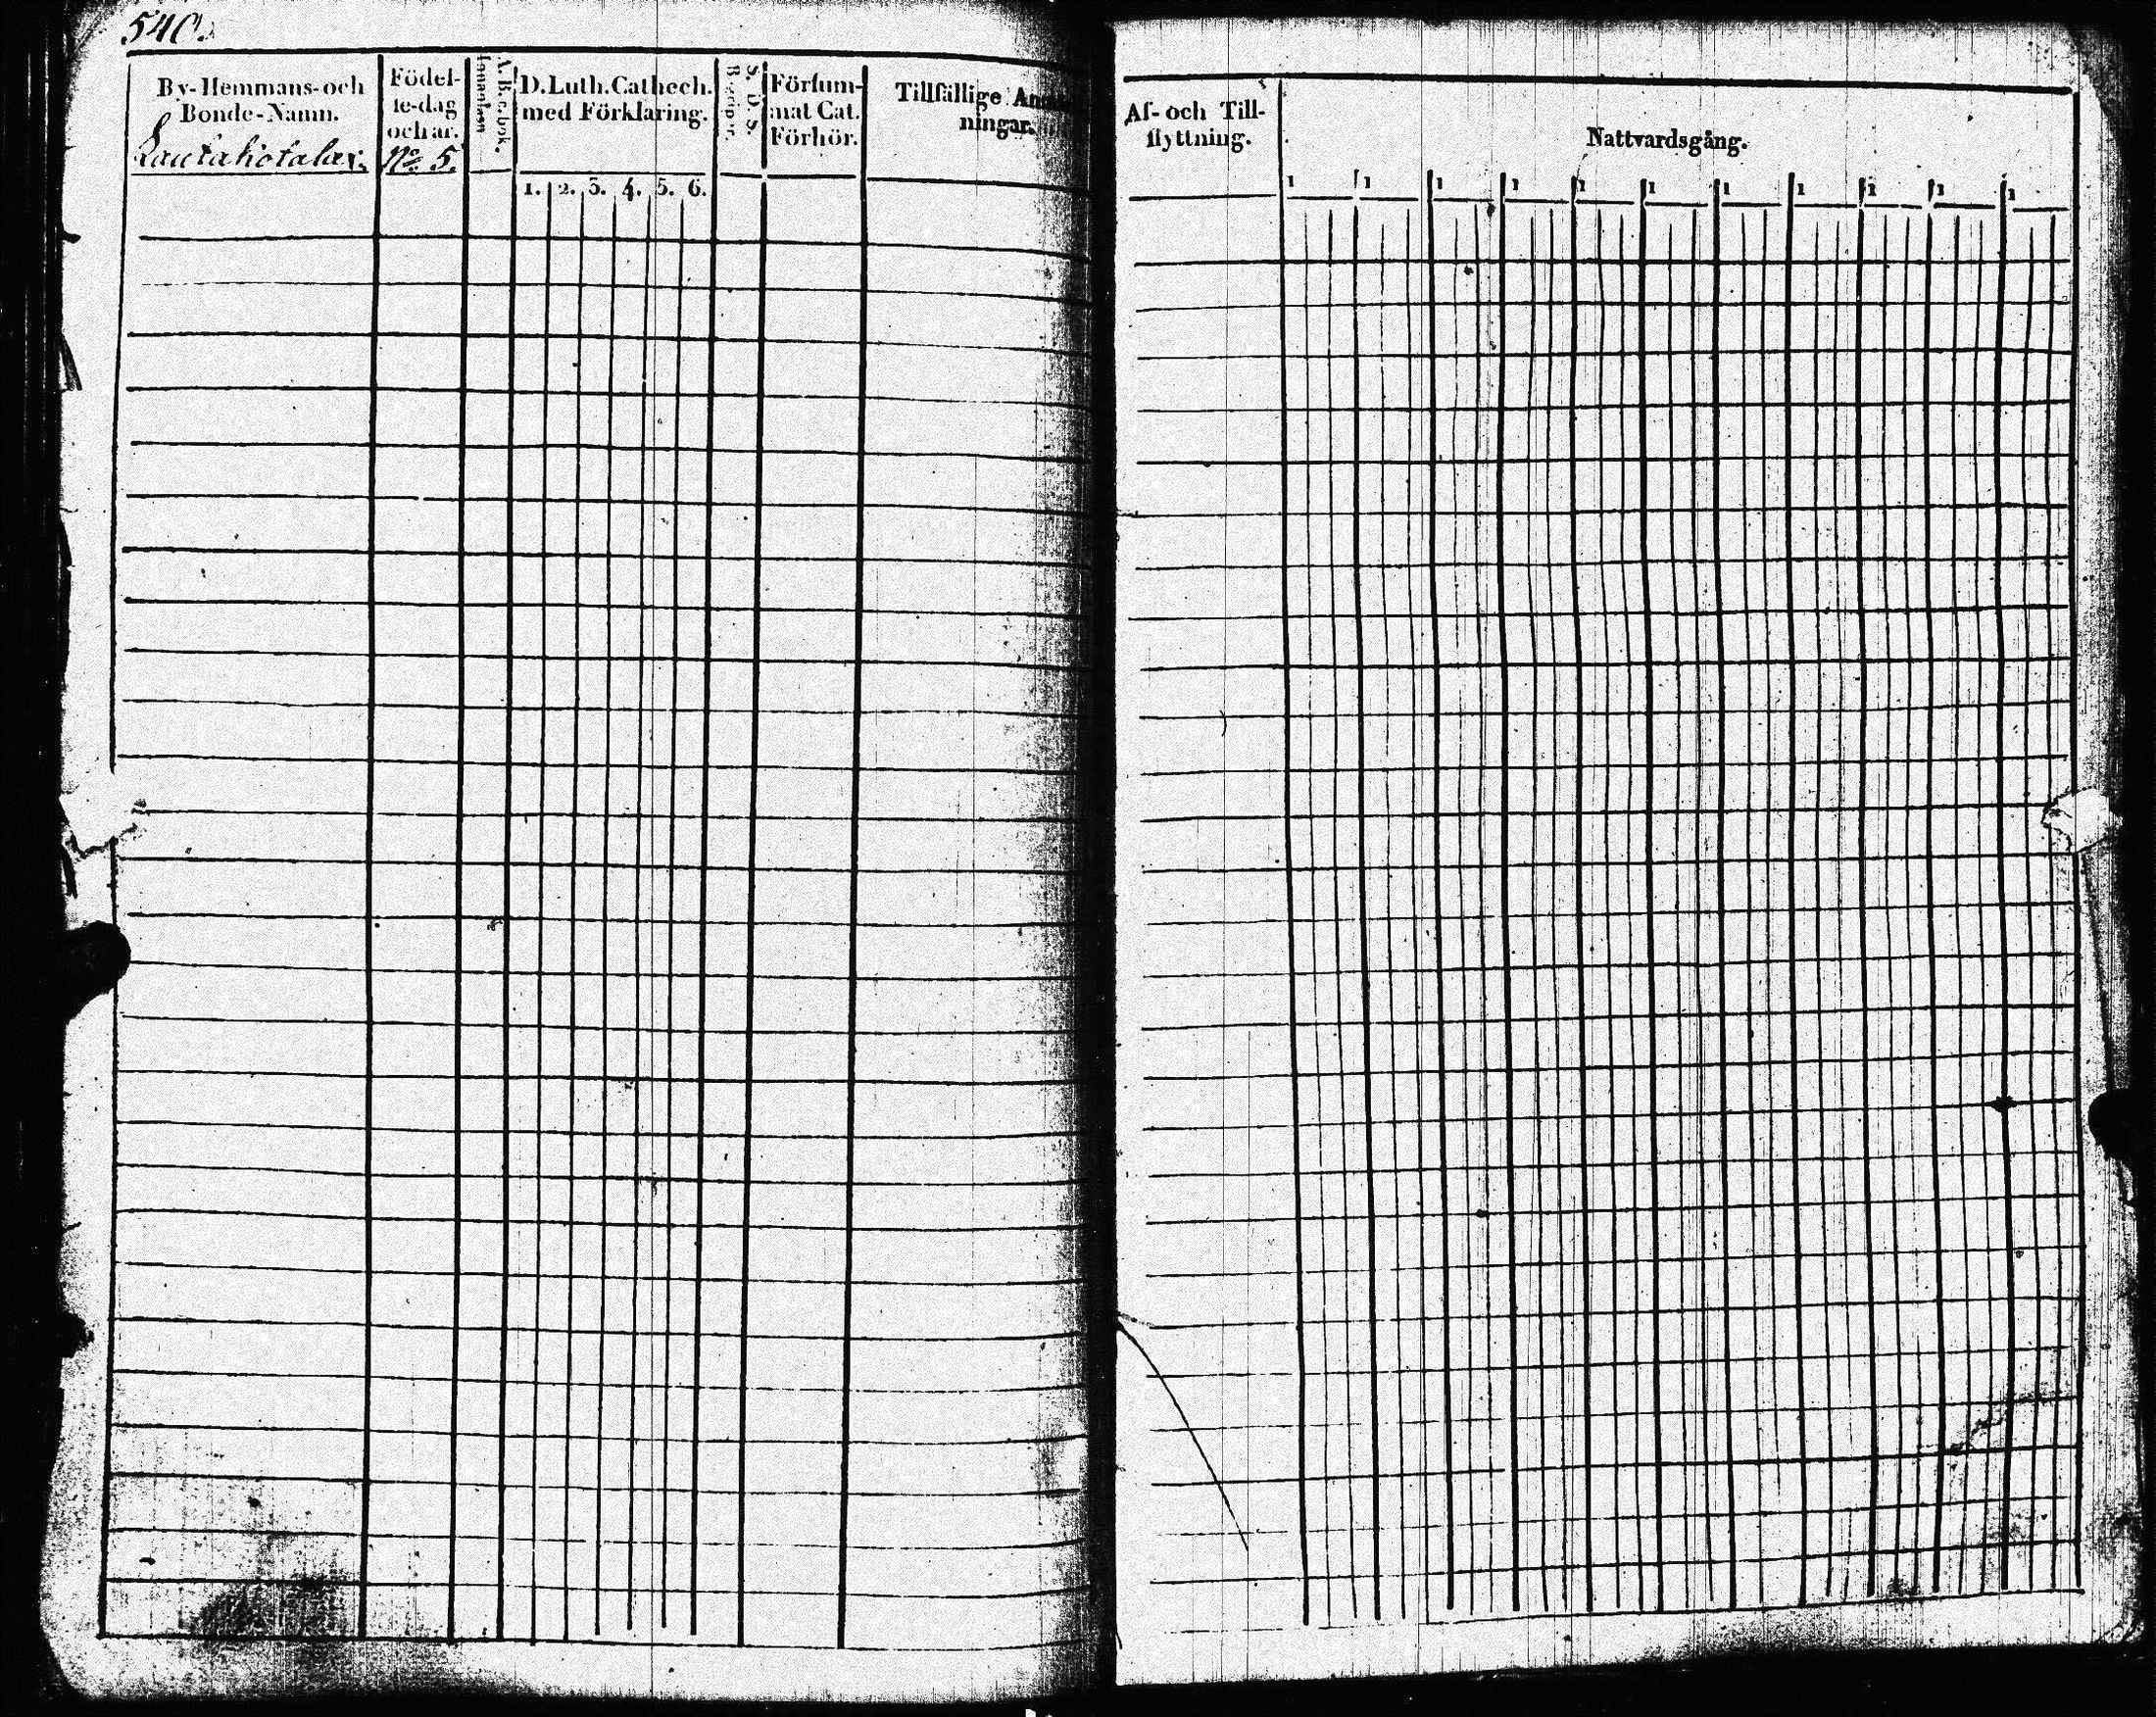 540.
By-Hemmans-och
Bonde-Namn.
Födel-
se-dag
och år.
No 5.
A. B. C. bok.
D. Luth. Cathech.
med Förklaring.
1. 2. 3. 4. 5. 6.
S. D. S.
Försum-
mat Cat.
Förhör.
Tillfällige
ningar.
Af- och Till-
flyttning.
Nattvardsgång.
1 1 1 1 1 1 1 1 1 1 1